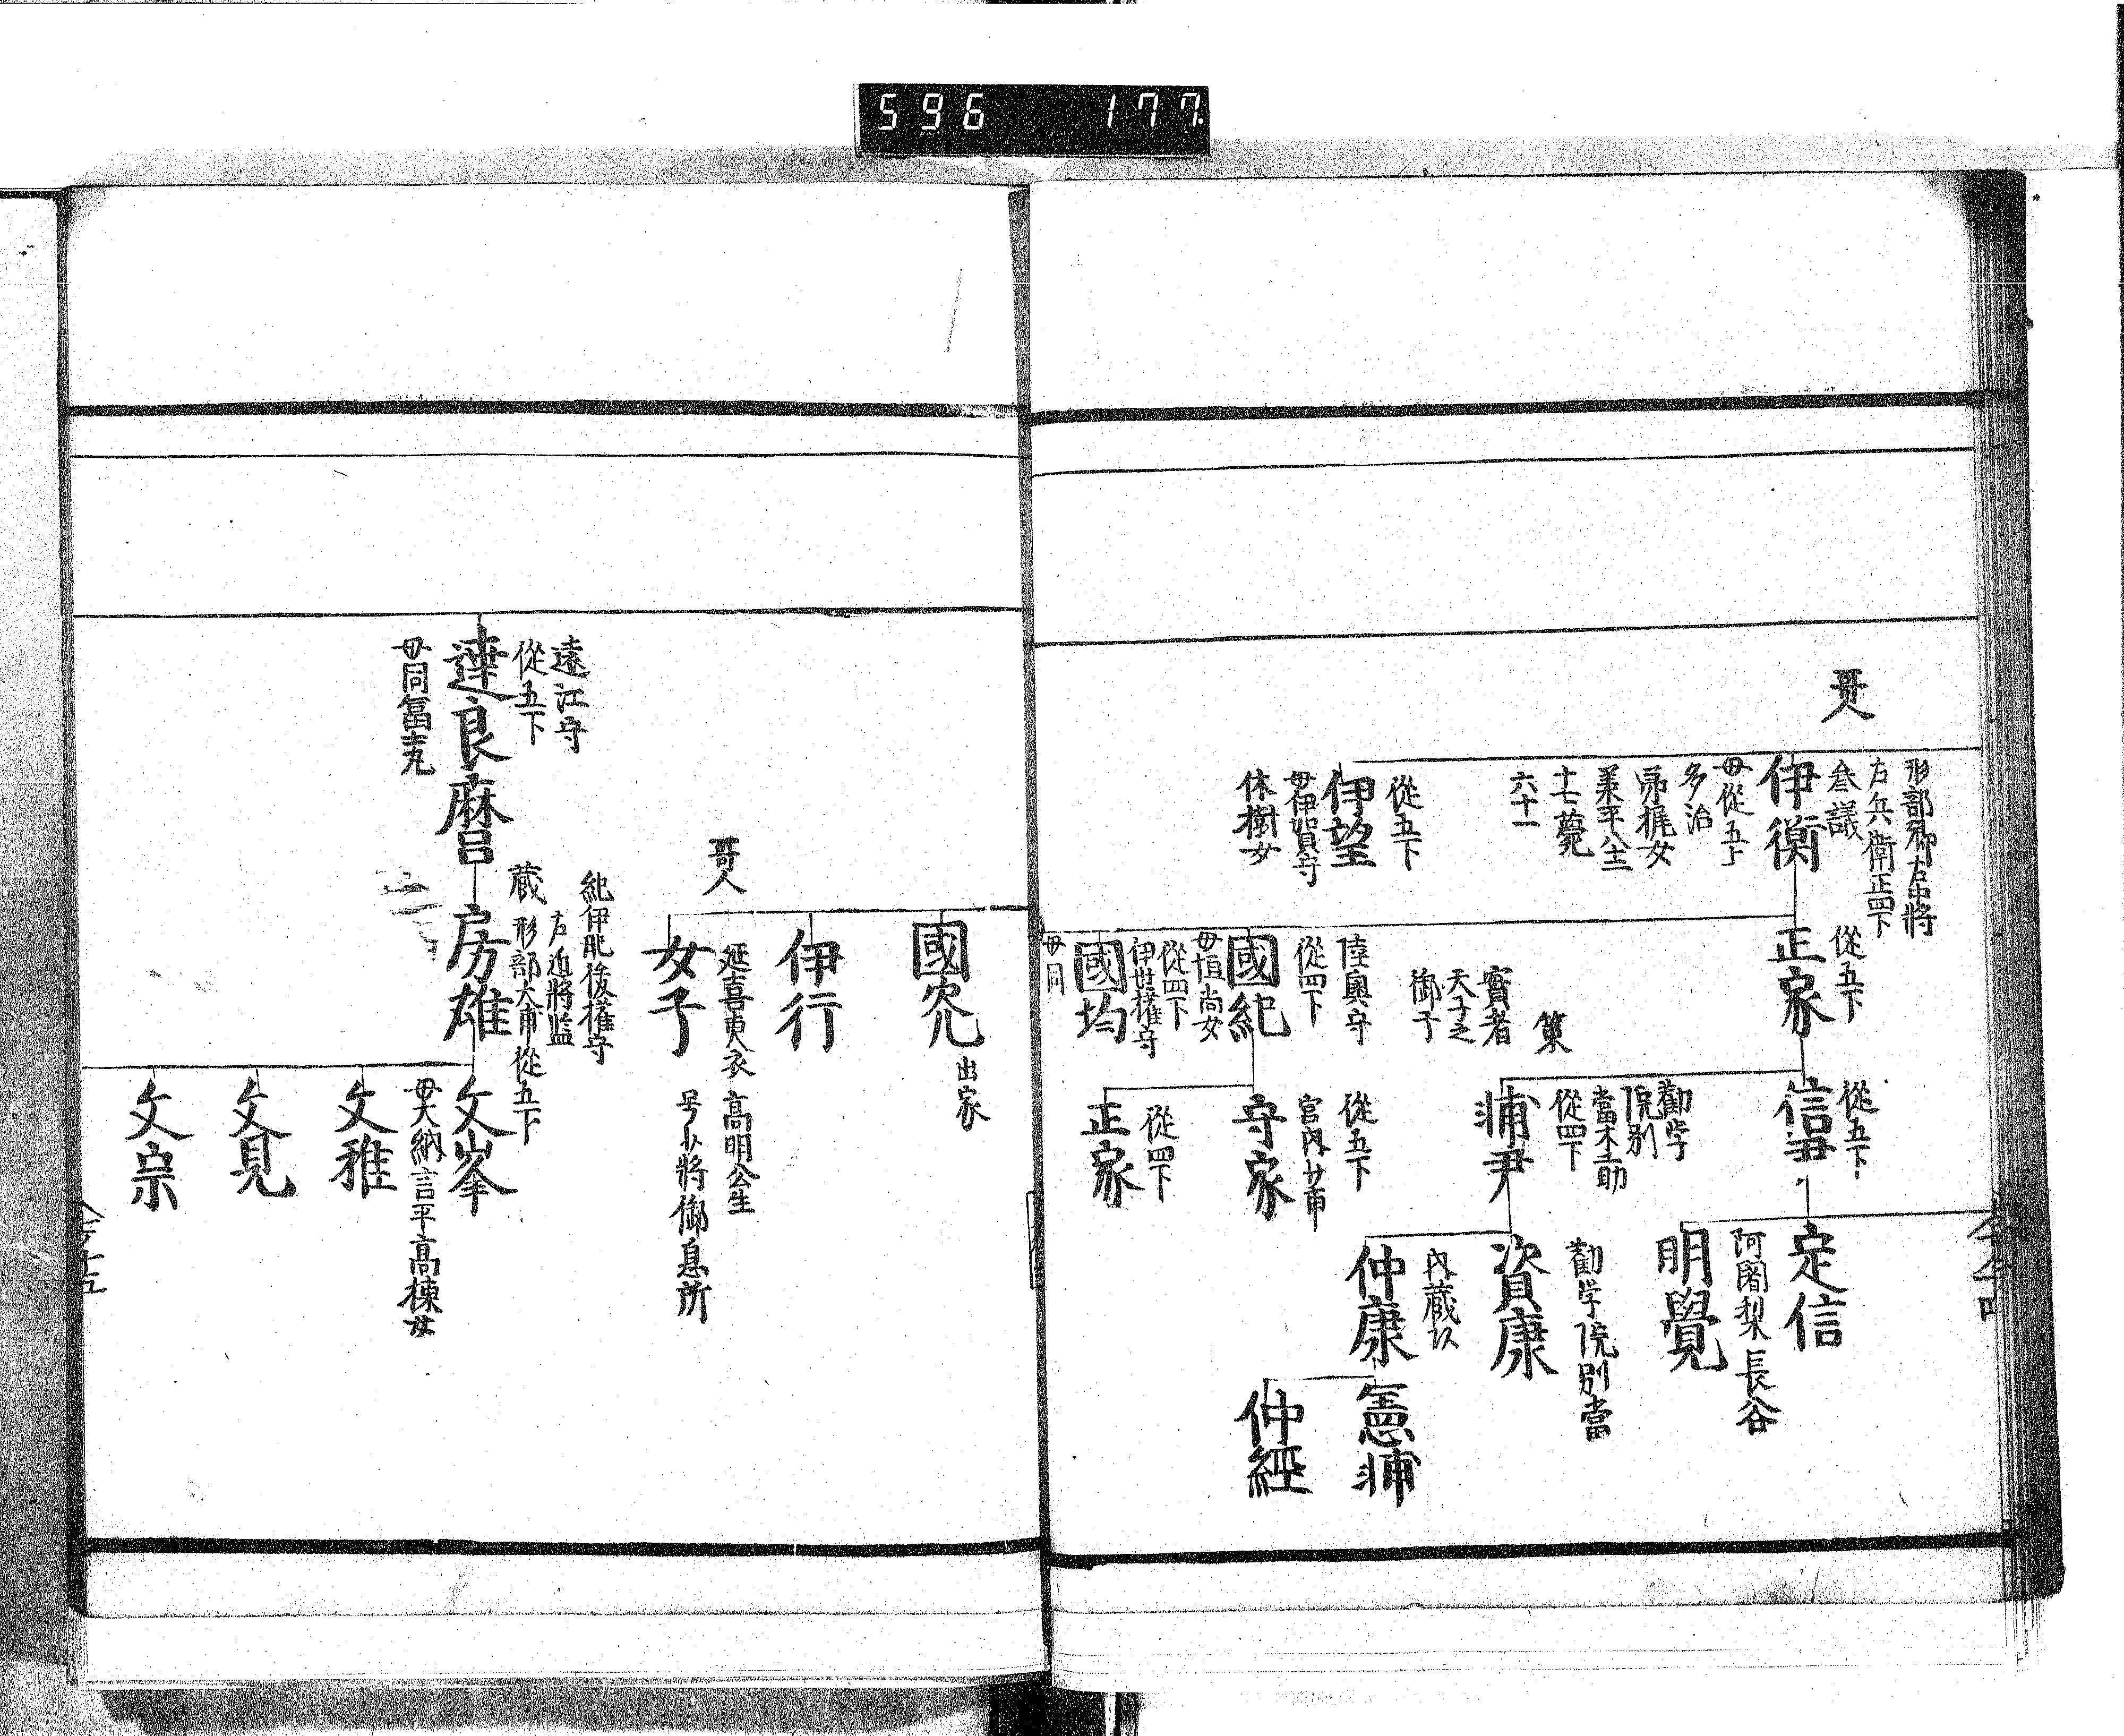 596 177.
哥人
形部卿右中將
右兵衛正四下
參議
伊衡
母從五上
多治
弟梶女
業平公生
十七薨
六十一
從五下
伊望
母伊賀守
休樹女
從五下
正家
實者
天子之
御子
陸奥守
從四下
國紀
母恒尚女
從四下
伊世權守
國均
母同
從五下
信尹
策
勸学
院別
當木工助
從四下
輔尹
從五下
宮内少甫
守家
從四下
正家
定信
阿闍梨 長谷
明覺
勸学院別當
資康
内蔵
仲康
憲輔
仲經
國光
出家
伊行
哥人
延喜更衣 高明公生
女子
号少將御息所
遠江守
從五下
達良麿
母同冨士丸
紀伊肥後權守
左近將監
蔵 形部大甫從五下
房雄
文峯
母大納言平高棟女
文雅
文見
文宗